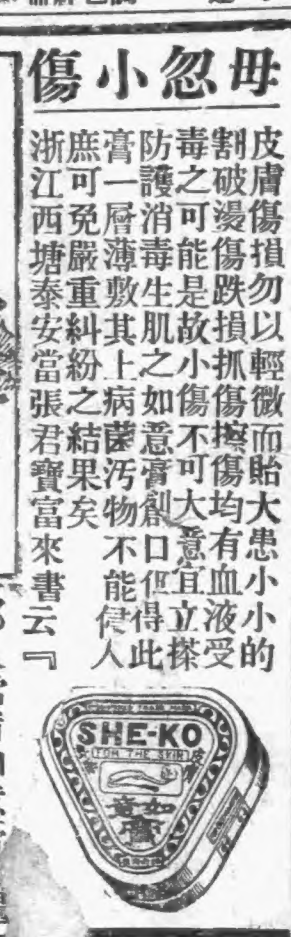 毋忽小傷
皮膚傷損勿以輕微而貽大患小小的
割破燙傷跌損抓傷擦傷均有血液受
毒之可能是故小傷不可大意宜立搽
防護消毒生肌之如意膏創口但得此
膏一層薄敷其上病菌汚物不能侵入
庶可免嚴重糾紛之結果矣
浙江西塘泰安當張君寶富來書云『
SHE-KO
FOR THE SKIN
如意
膏